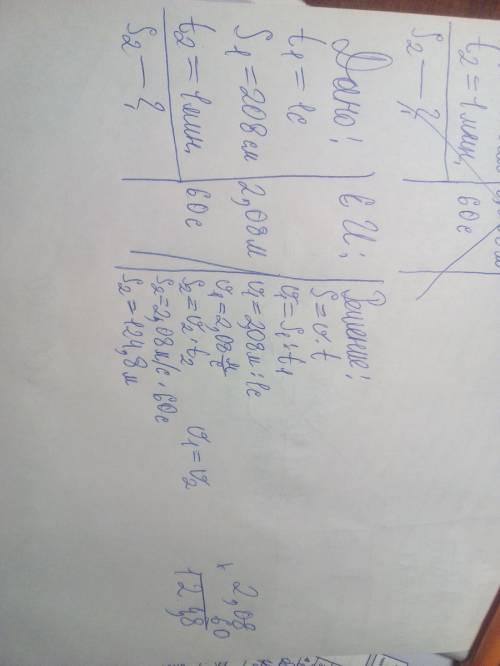 t2 = 1 мин,
60с
S2 — ?,
Дано:
СИ:
Решение:
t1 = 1с
S = v · t
S1 = 208 см
2,08м
v1 = S1 : t1
v1 = 2,08м : 1с
t2 = 1 мин,
60с
v1 = 2,08 м/с
S2 — ?,
S2 = v2 · t2
v1 = v2
S2 = 2,08 м/с · 60с
S2 = 124,8 м
× 2,08
60
124,8